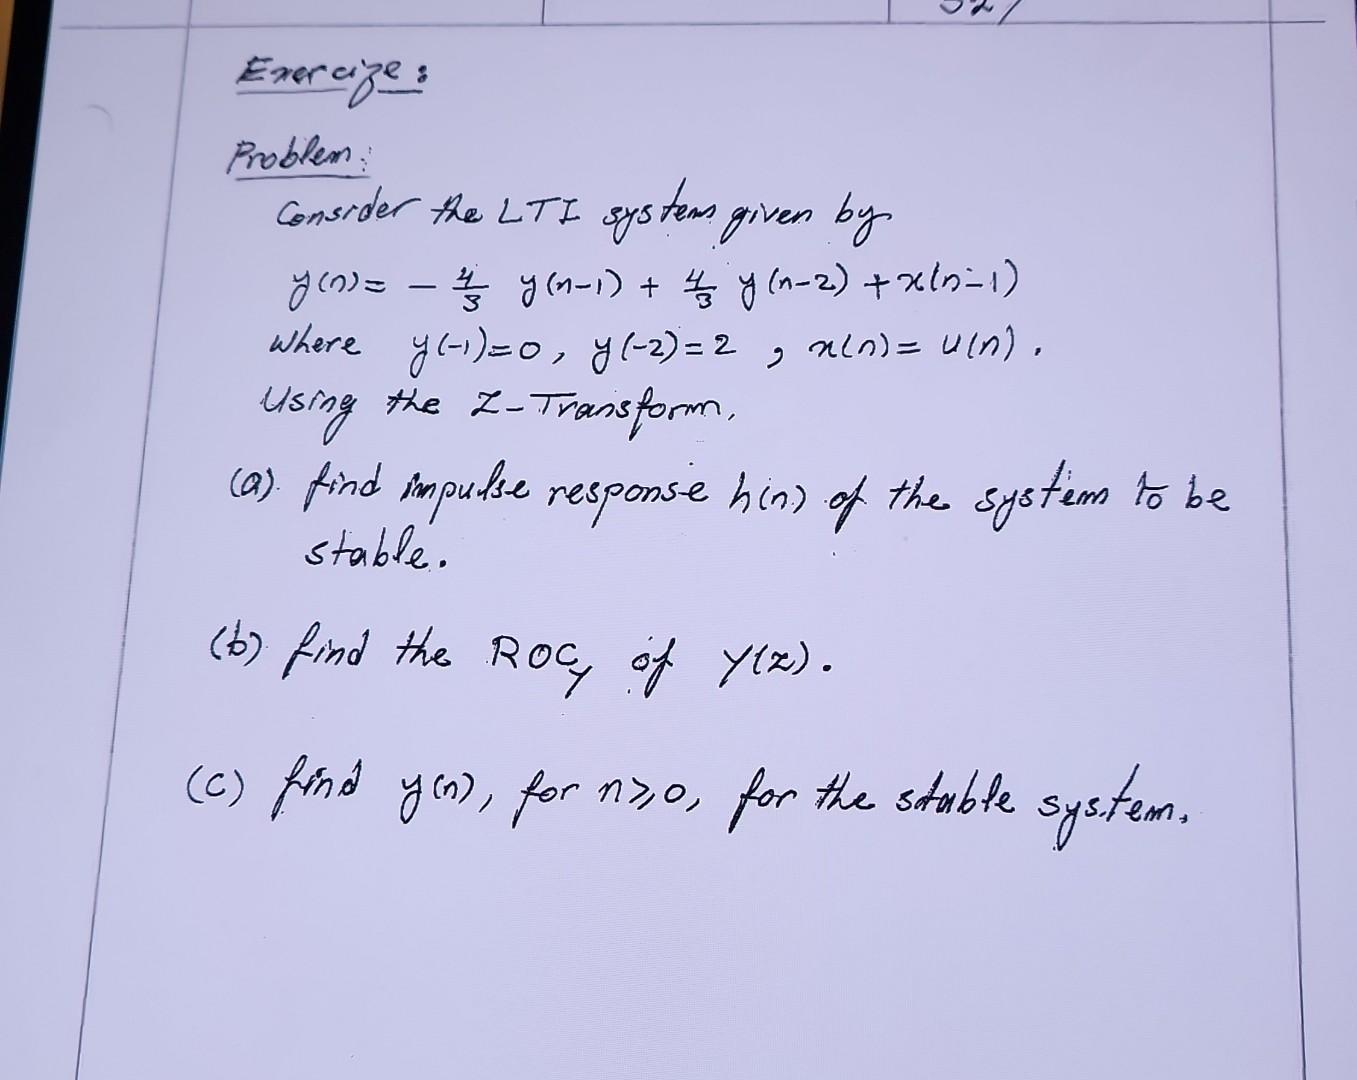 Exercize:
Problem:
Consider the LTI system given by
y(n) = - 4/3 y(n-1) + 4/3 y(n-2) + x(n-1)
where y(-1)=0, y(-2)=2, x(n)= u(n).
Using the Z-Transform,
(a). find impulse response h(n) of the system to be
stable.
(b) find the ROCy of Y(z).
(c) find y(n), for n≥0, for the stable system.